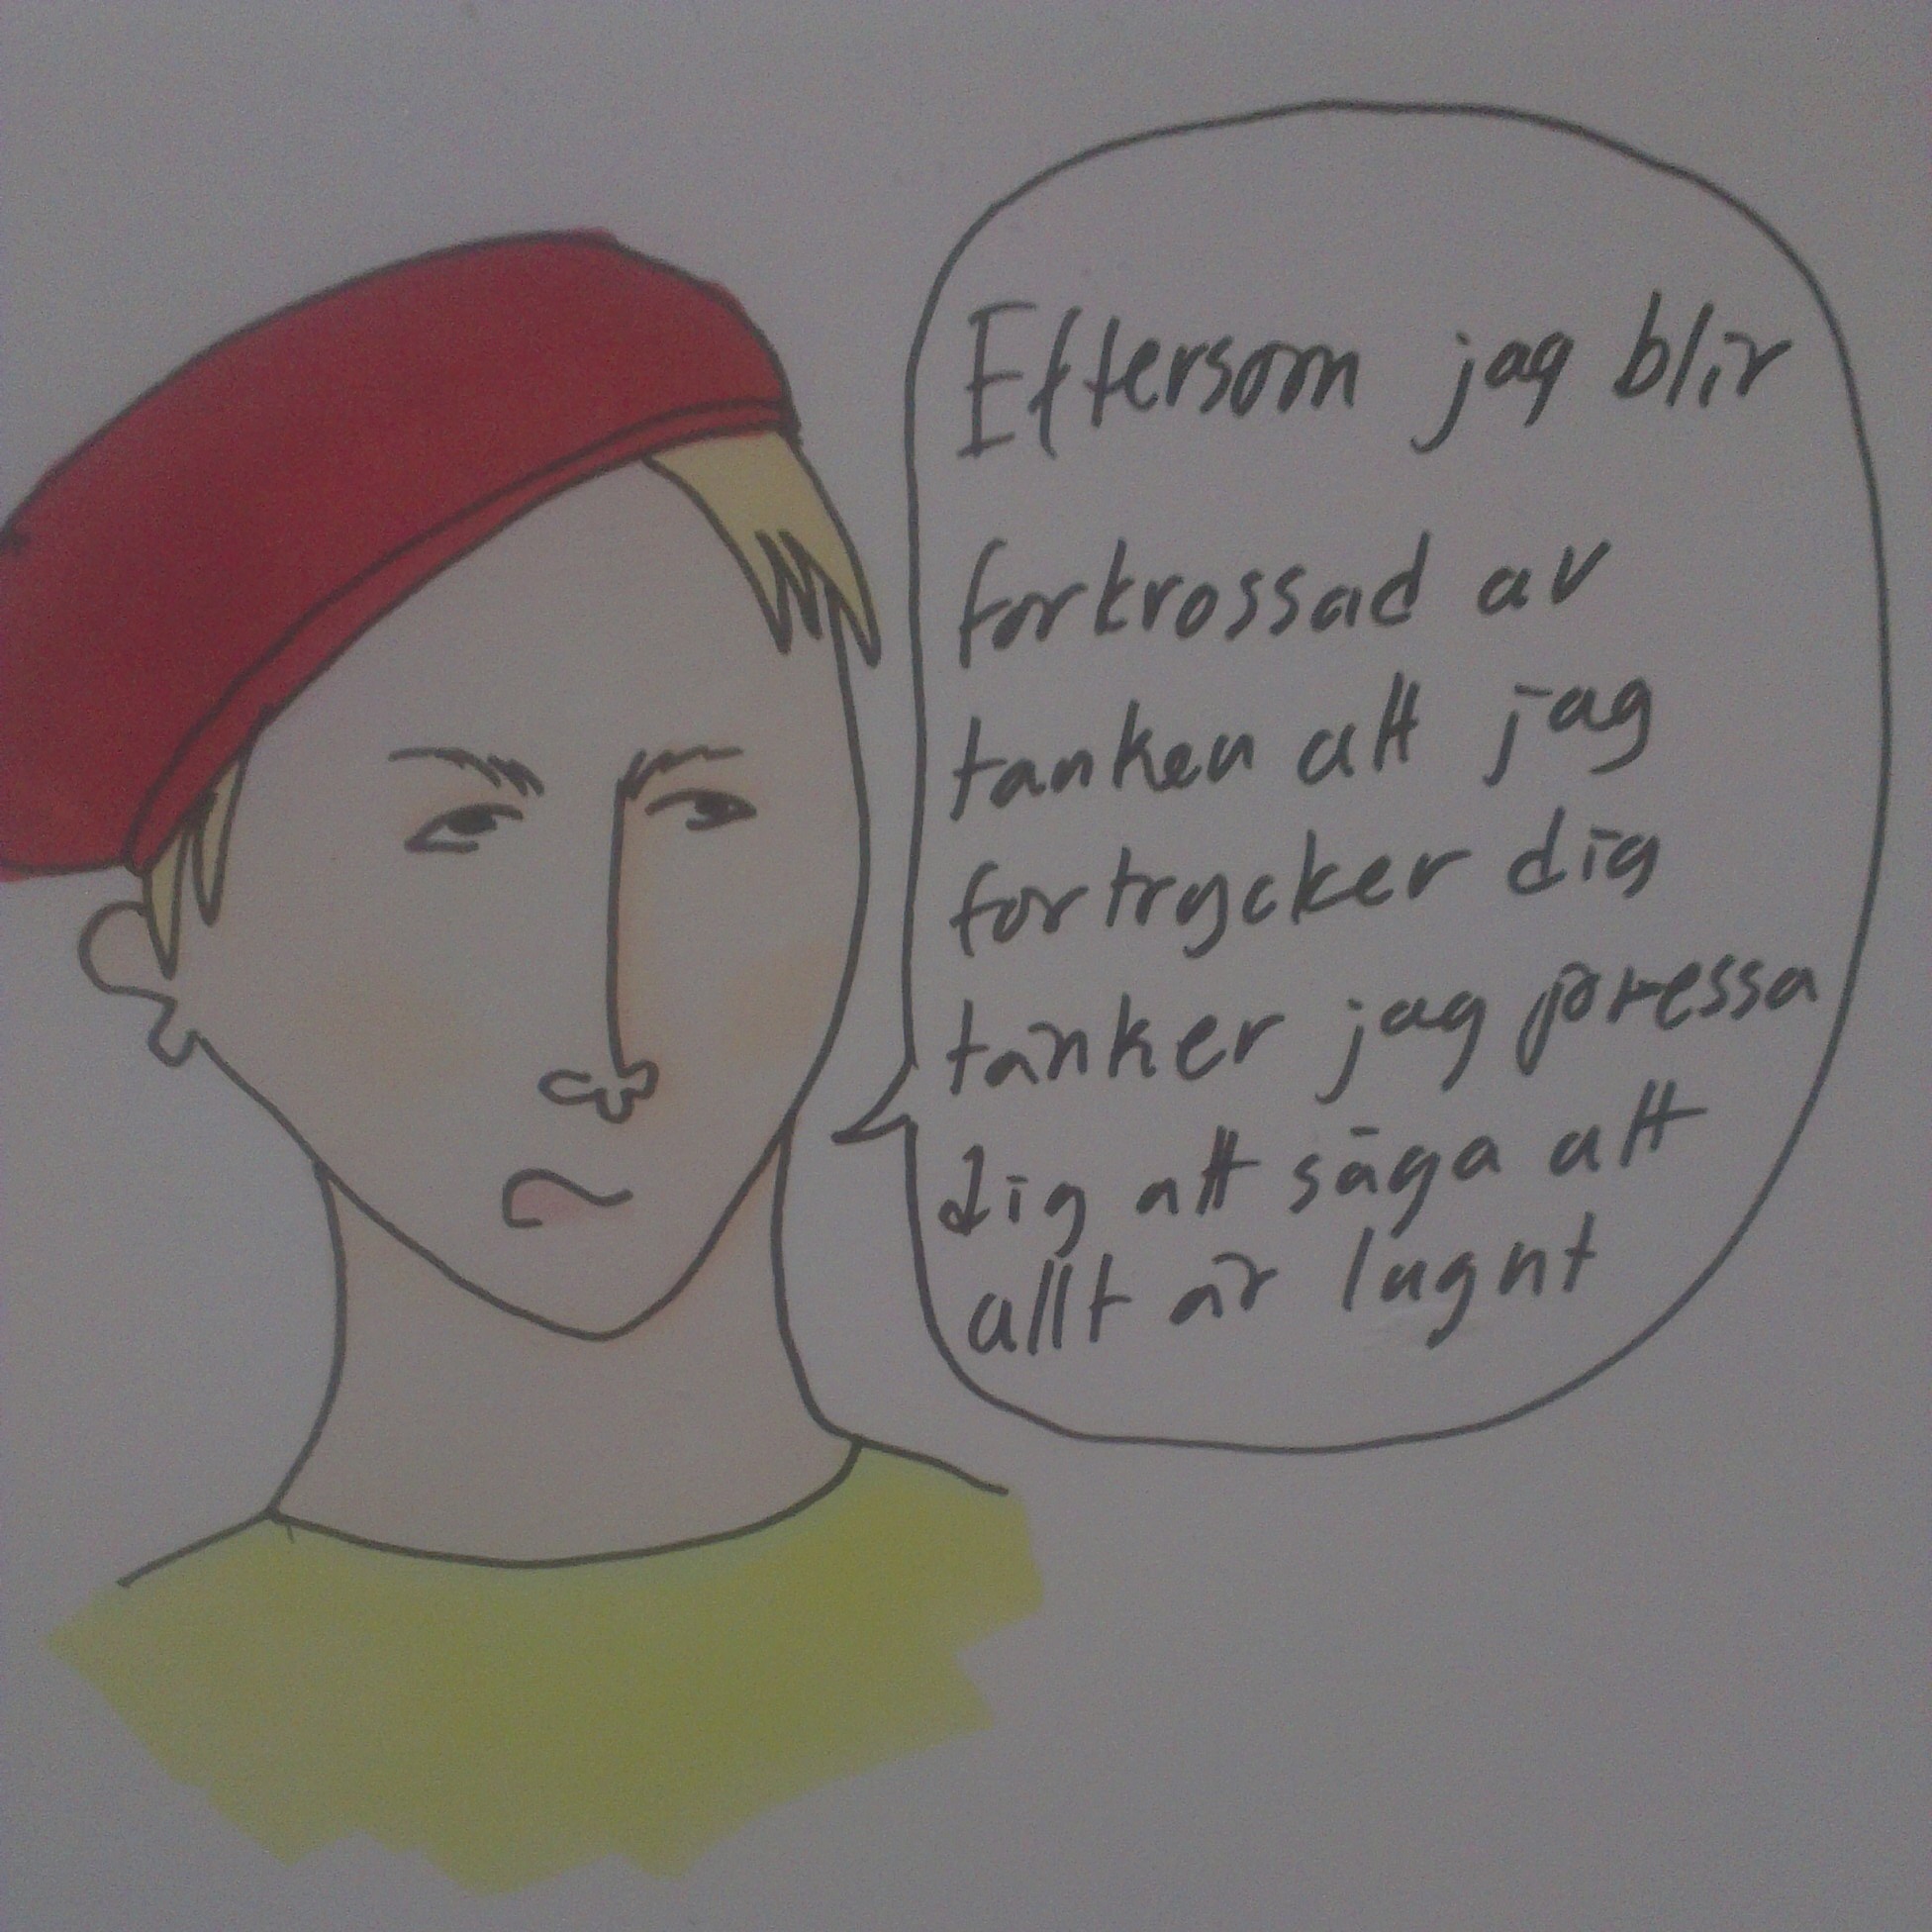 Eftersom jag blir
förkrossad av
tanken att jag
förtrycker dig
tänker jag pressa
dig att säga att
allt är lugnt